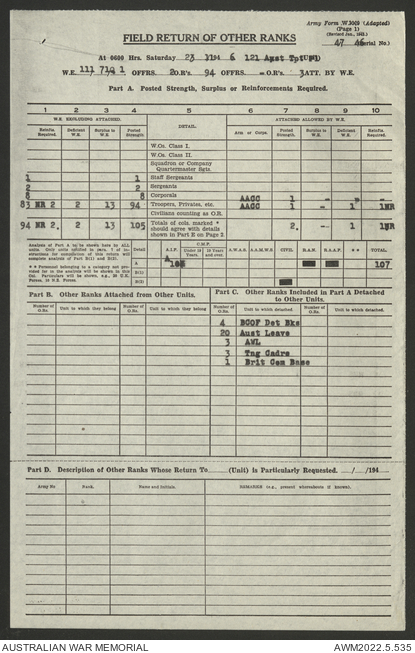 Army Form W3009 (Adapted)
(Page 1)
(Revised Jan., 1943.)
47 46 (Serial No.)
FIELD RETURN OF OTHER RANKS
At 0600 Hrs. Saturday 23 194 6 121 Aust Tpt (Unit)
W.E. 111 OFFRS. O.R's. 94 OFFRS. O.R's. ATT. BY W.E.
Part A. Posted Strength, Surplus or Reinforcements Required.
1 2 3 4 5 6 7 8 9 10
W.E. EXCLUDING ATTACHED. DETAIL. ATTACHED ALLOWED BY W.E.
Reinfts. Required. Deficient W.E. Surplus to W.E. Posted Strength. Arm or Corps. Posted Strength. Surplus to W.E. Deficient W.E. Reinfts. Required.
W.Os. Class I.
W.Os. Class II.
Squadron or Company Quartermaster Sgts.
1 1 Staff Sergeants
2 2 Sergeants
8 8 Corporals
AAGC 1 - -
83 NR 2 2 13 94 Troopers, Privates, etc. AAGC 1 - 1 1NR
Civilians counting as O.R.
94 NR 2. 2 13 105 Totals of cols. marked * should agree with details shown in Part E on Page 2 2. - 1 1NR
Analysis of Part A to be shown here by ALL units.
Detail A.I.F. C.M.F. Under 19 Years. 19 Years and over. A.W.A.S. A.A.M.W.S. CIVIL R.A.N. R.A.A.F. * * TOTAL.
A 105 107
B(1)
B(2)
Part B. Other Ranks Attached from Other Units.
Part C. Other Ranks Included in Part A Detached to Other Units.
Number of O.Rs. Unit to which they belong Number of O.Rs. Unit to which they belong Number of O.Rs. Unit to which detached. Number of O.Rs. Unit to which detached.
4 BCOF Det Bks
20 Aust Leave
3 AWL
3 Tng Cadre
1 Brit Com Base
Part D. Description of Other Ranks Whose Return To (Unit) is Particularly Requested. / /194
Army No Rank. Name and Initials. REMARKS (e.g., present whereabouts if known).
AUSTRALIAN WAR MEMORIAL AWM2022.5.535